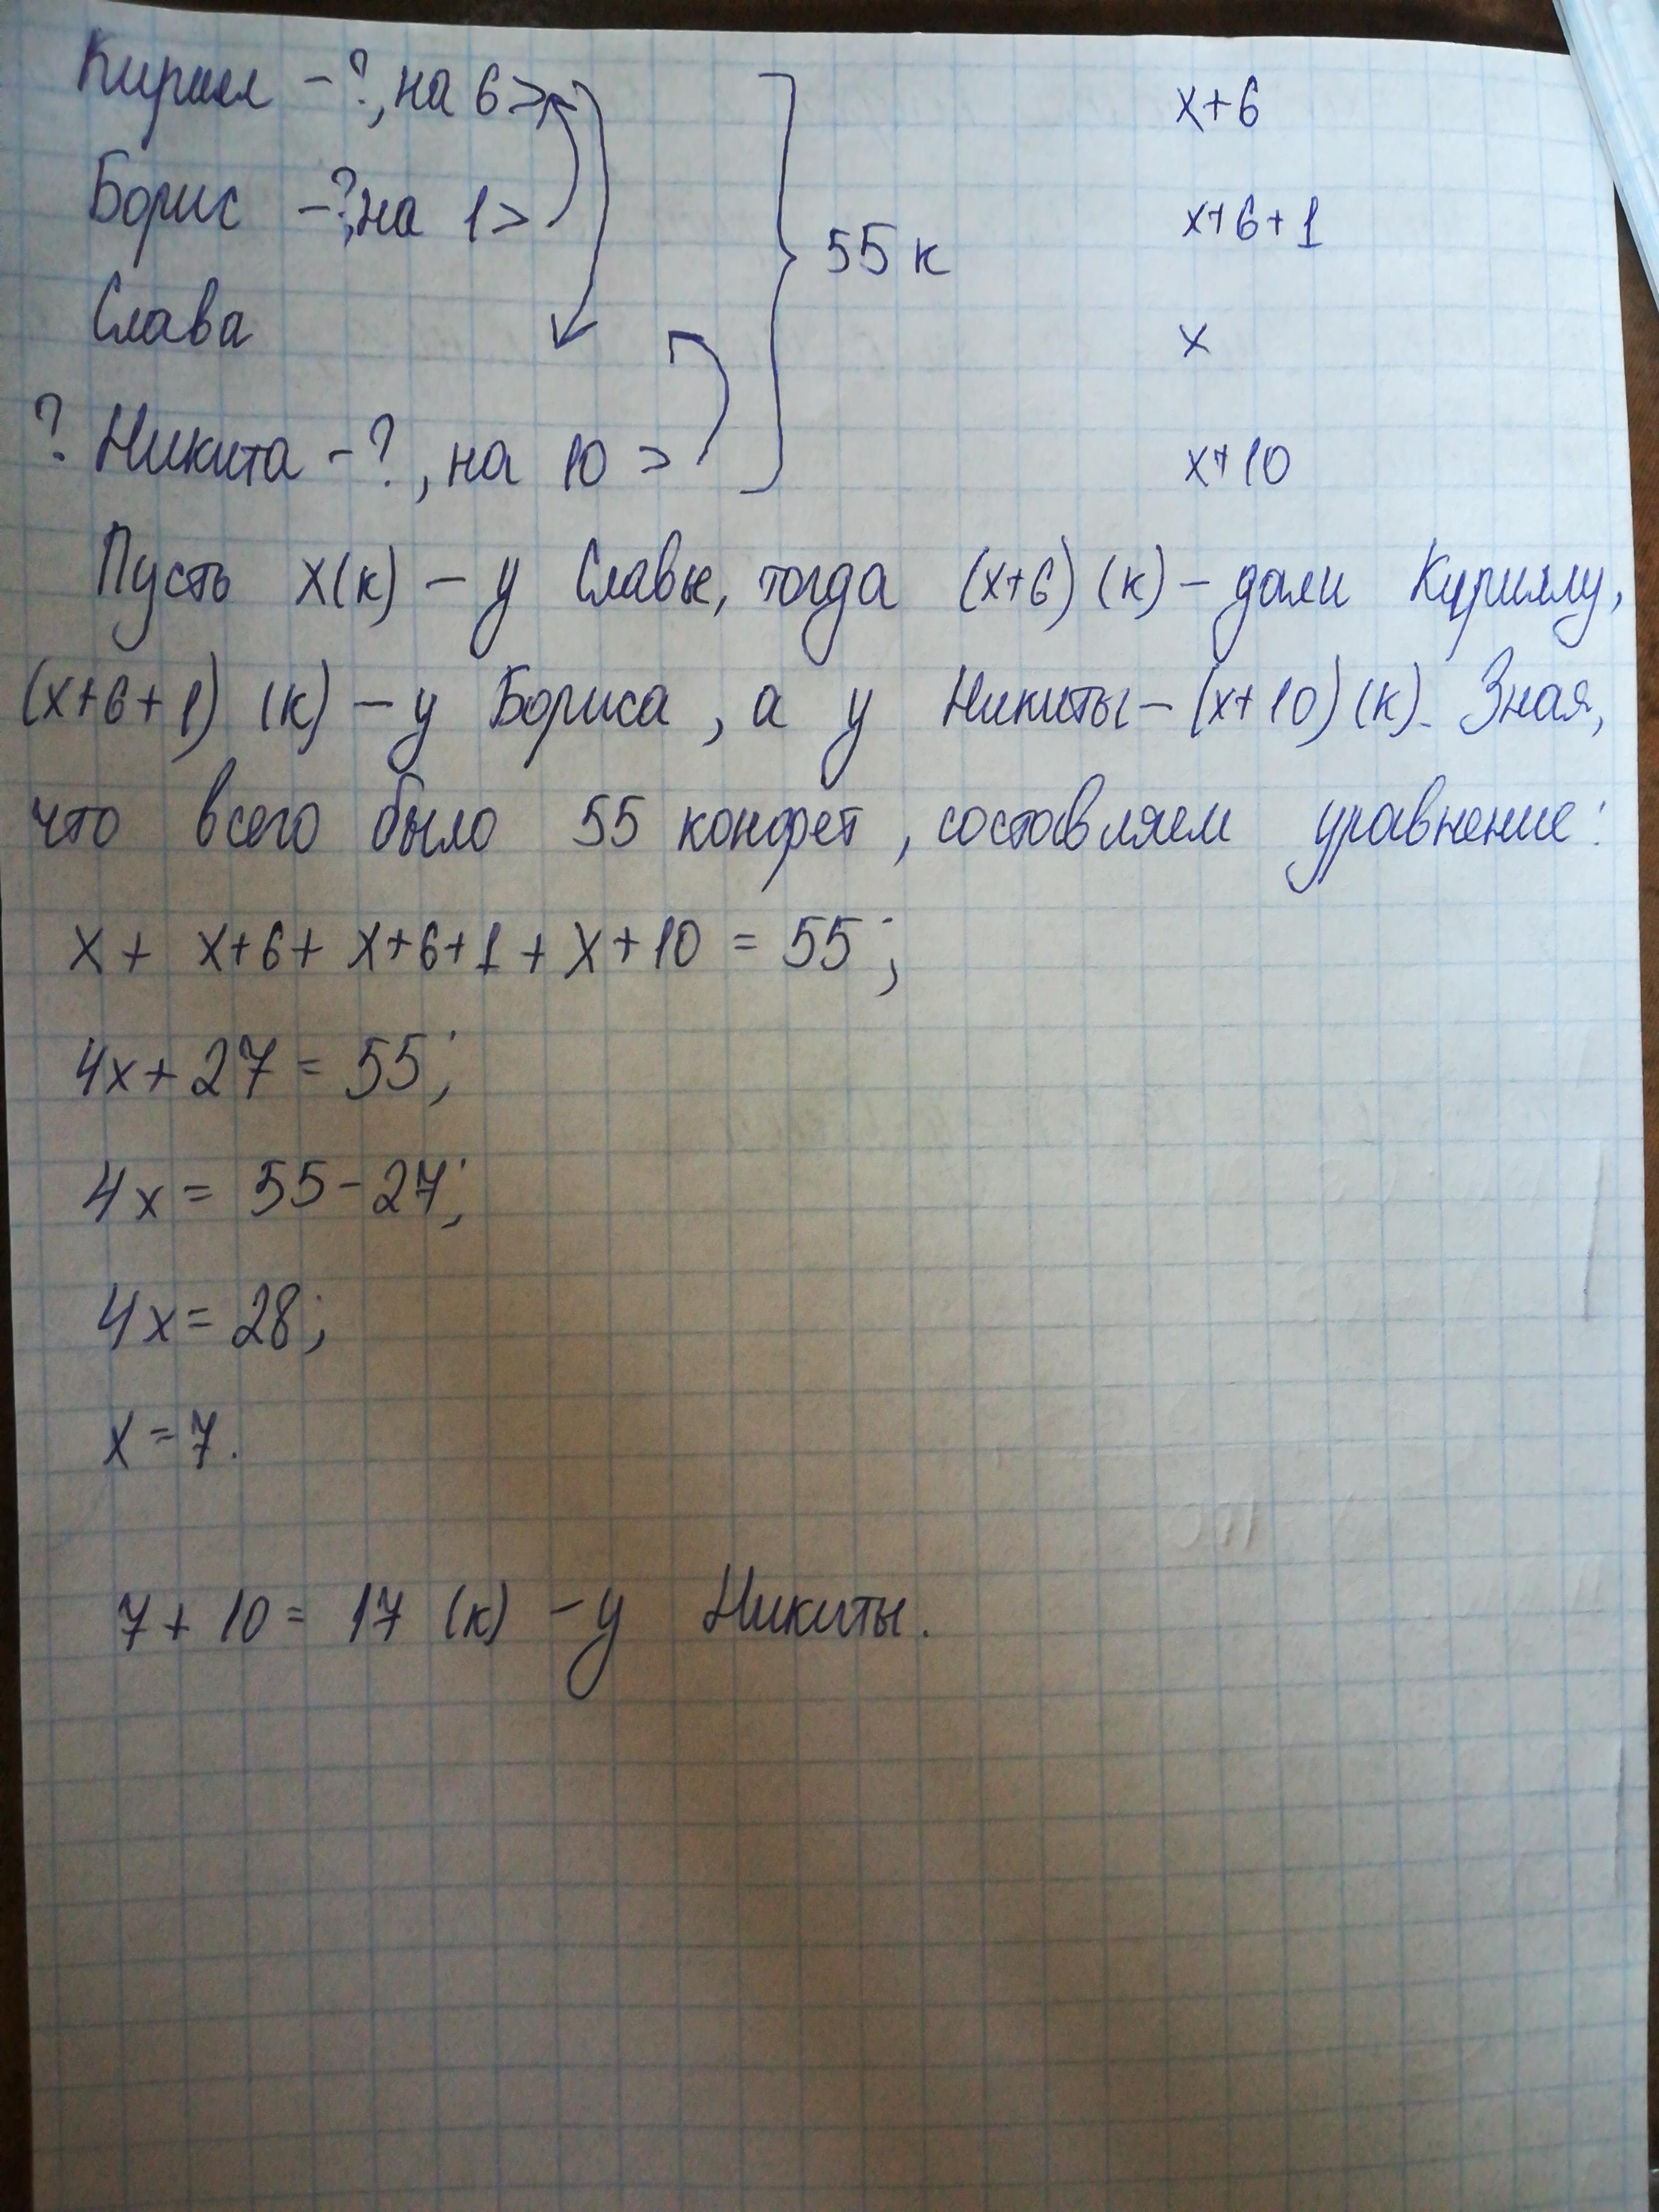 Кирилл -?, на 6 > x+6
Борис -?, на 1 > x+6+1
55 к
Слава x
? Никита -?, на 10 > x+10
Пусть x(к) - у Славы, тогда (x+6) (к) - дали Кириллу,
(x+6+1) (к) - у Бориса, а у Никиты - (x+10) (к). Зная,
что всего было 55 конфет, составляем уравнение:
x + x+6+ x+6+1 + x+10 = 55;
4x+27 = 55;
4x = 55-27;
4x = 28;
x = 7.
7 + 10 = 17 (к) - у Никиты.